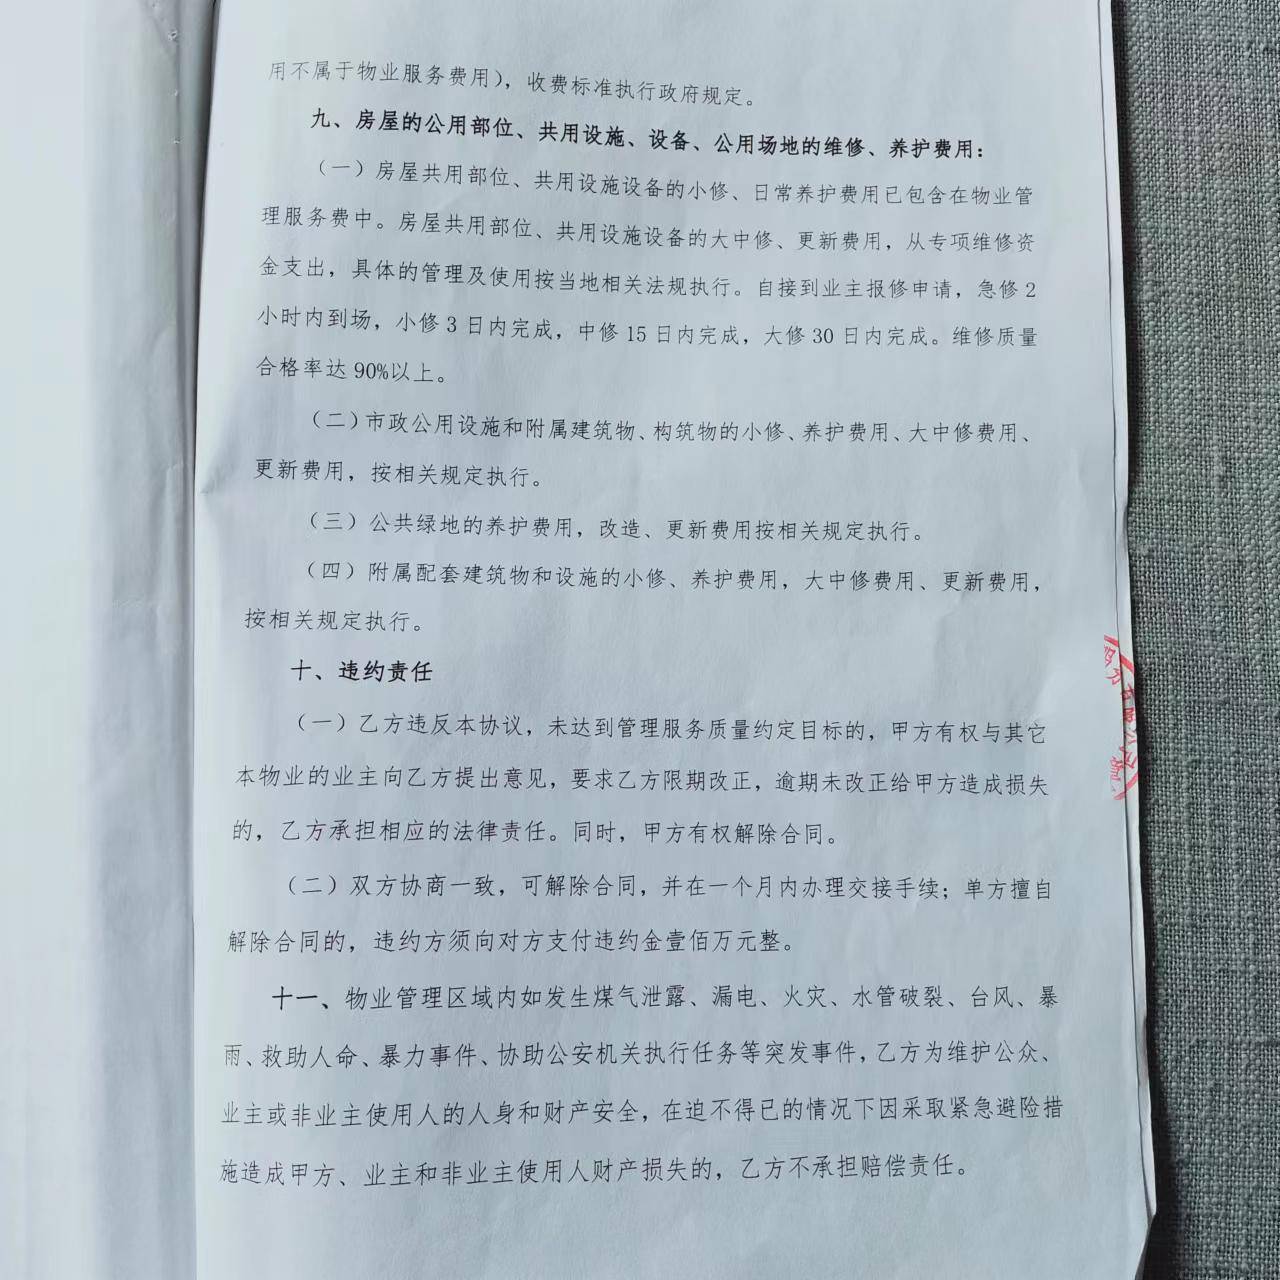 用不属于物业服务费用），收费标准执行政府规定。
九、房屋的公用部位、共用设施、设备、公用场地的维修、养护费用：
（一）房屋共用部位、共用设施设备的小修、日常养护费用已包含在物业管
理服务费中。房屋共用部位、共用设施设备的大中修、更新费用，从专项维修资
金支出，具体的管理及使用按当地相关法规执行。自接到业主报修申请，急修 2
小时内到场，小修 3 日内完成，中修 15 日内完成，大修 30 日内完成。维修质量
合格率达 90%以上。
（二）市政公用设施和附属建筑物、构筑物的小修、养护费用、大中修费用、
更新费用，按相关规定执行。
（三）公共绿地的养护费用，改造、更新费用按相关规定执行。
（四）附属配套建筑物和设施的小修、养护费用，大中修费用、更新费用，
按相关规定执行。
十、违约责任
（一）乙方违反本协议，未达到管理服务质量约定目标的，甲方有权与其它
本物业的业主向乙方提出意见，要求乙方限期改正，逾期未改正给甲方造成损失
的，乙方承担相应的法律责任。同时，甲方有权解除合同。
（二）双方协商一致，可解除合同，并在一个月内办理交接手续；单方擅自
解除合同的，违约方须向对方支付违约金壹佰万元整。
十一、物业管理区域内如发生煤气泄露、漏电、火灾、水管破裂、台风、暴
雨、救助人命、暴力事件、协助公安机关执行任务等突发事件，乙方为维护公众、
业主或非业主使用人的人身和财产安全，在迫不得已的情况下因采取紧急避险措
施造成甲方、业主和非业主使用人财产损失的，乙方不承担赔偿责任。